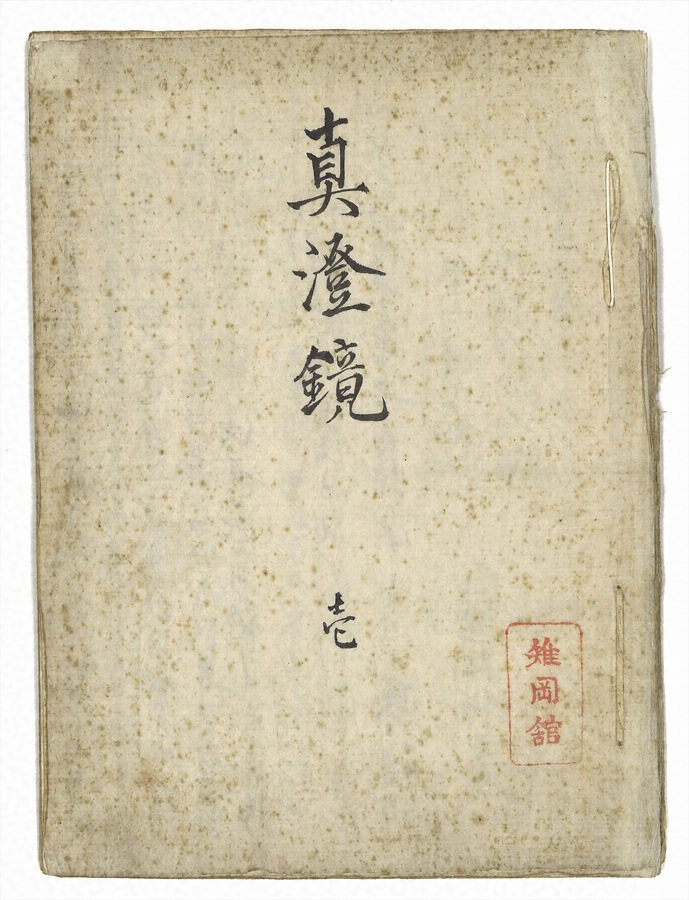 真澄鏡
壱
雉岡舘